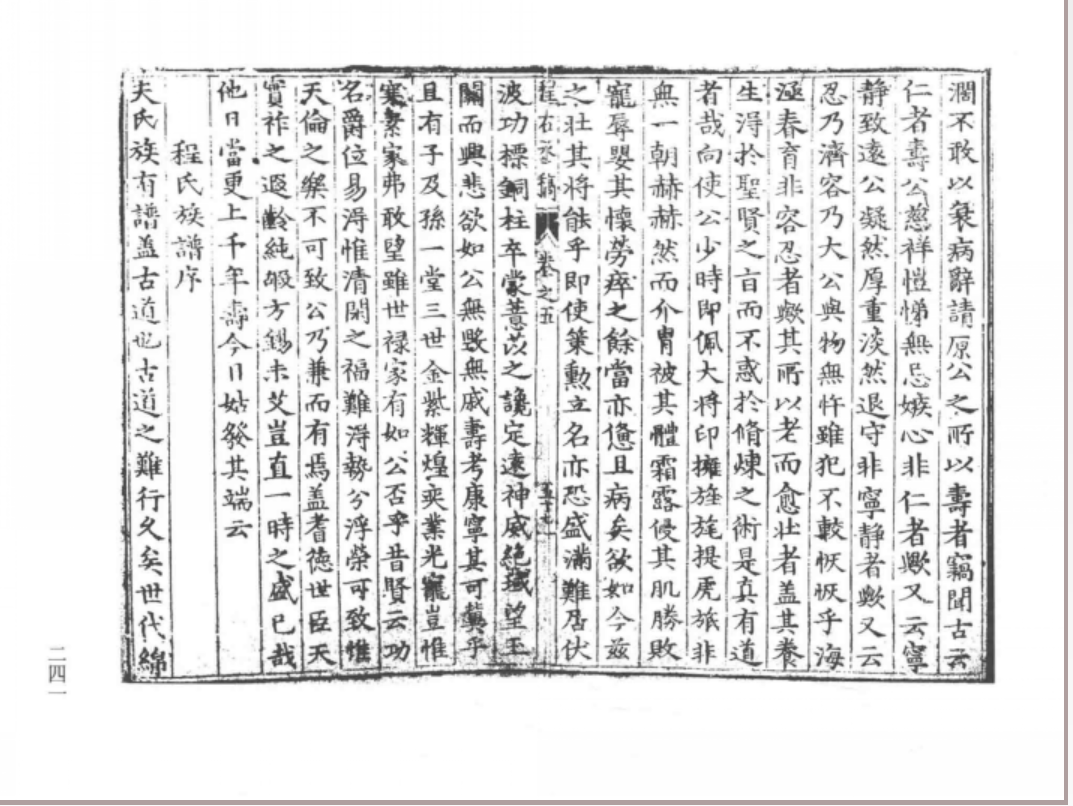 濶不敢以衰病辭請原公之所以壽者竊聞古云
仁者壽公慈祥愷悌無忌嫉心非仁者歟又云寧
静致遠公凝然厚重淡然退守非寧静者歟又云
忍乃濟容乃大公與物無忤雖犯不較恢恢乎海
涵春育非容忍者歟其所以老而愈壯者盖其養
生淂於聖賢之旨而不惑於脩煉之術是真有道
者哉向使公少時即佩大将印擁旌旄提虎旅非
無一朝赫赫然而介胄被其體霜露侵其肌勝敗
寵辱嬰其懷勞瘁之餘當亦憊且病矣欲如今兹
之壯其将能乎即使策勳立名亦恐盛滿難居伏
卷之五
波功標銅柱卒蒙薏苡之讒定遠神威絶域望玉
關而興悲欲如公無毀無戚壽考康寧其可冀乎
且有子及孫一堂三世金紫輝煌奕業光寵豈惟
寒素家弗敢望雖世禄家有如公否乎昔賢云功
名爵位易淂惟清閑之福難淂勢分浮榮可致惟
天倫之樂不可致公乃兼而有焉盖耆德世臣天
賚祚之遐齡純嘏方錫未艾豈直一時之盛已哉
他日當更上千年壽今日姑發其端云
程氏族譜序
夫氏族有譜盖古道也古道之難行久矣世代綿
二四一